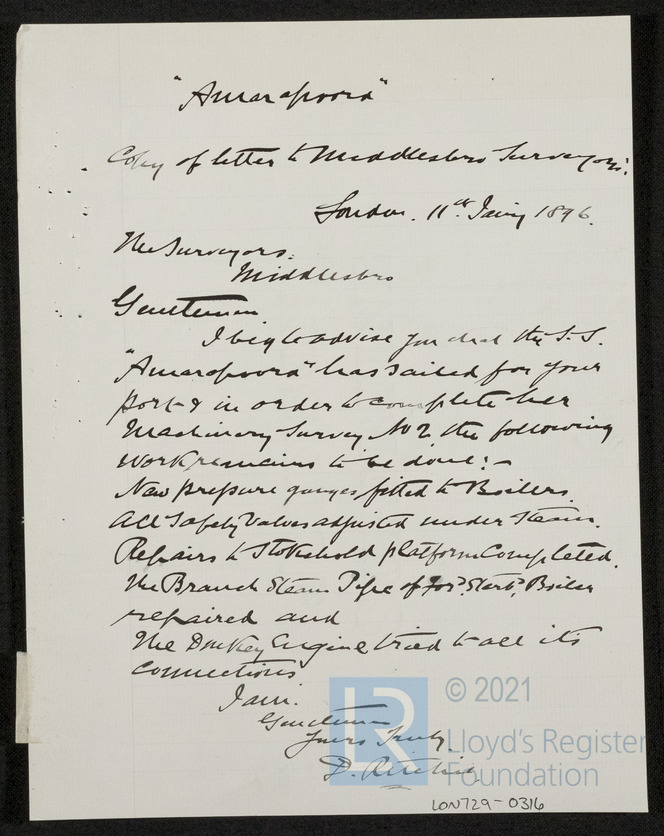 "Amarapoora"
Copy of letter to Middlesbro Surveyors:
London. 11th Jany 1896.
The Surveyors.
Middlesbro
Gentlemen
I beg to advise you that the S.S.
"Amarapoora" has sailed for your
port & in order to complete her
Machinery Survey No 2, the following
work remains to be done:-
New pressure gauges fitted to Boilers.
All Safety Valves adjusted under steam.
Repairs to Stokehold platform Completed.
The Branch Steam Pipe of For'd Starb'd Boiler
repaired and
The Donkey Engine tried to all its
connections
I am.
Gentlemen
Yours Truly.
D. Ritchie
LR
© 2021
Lloyd's Register
Foundation
LON729-0316